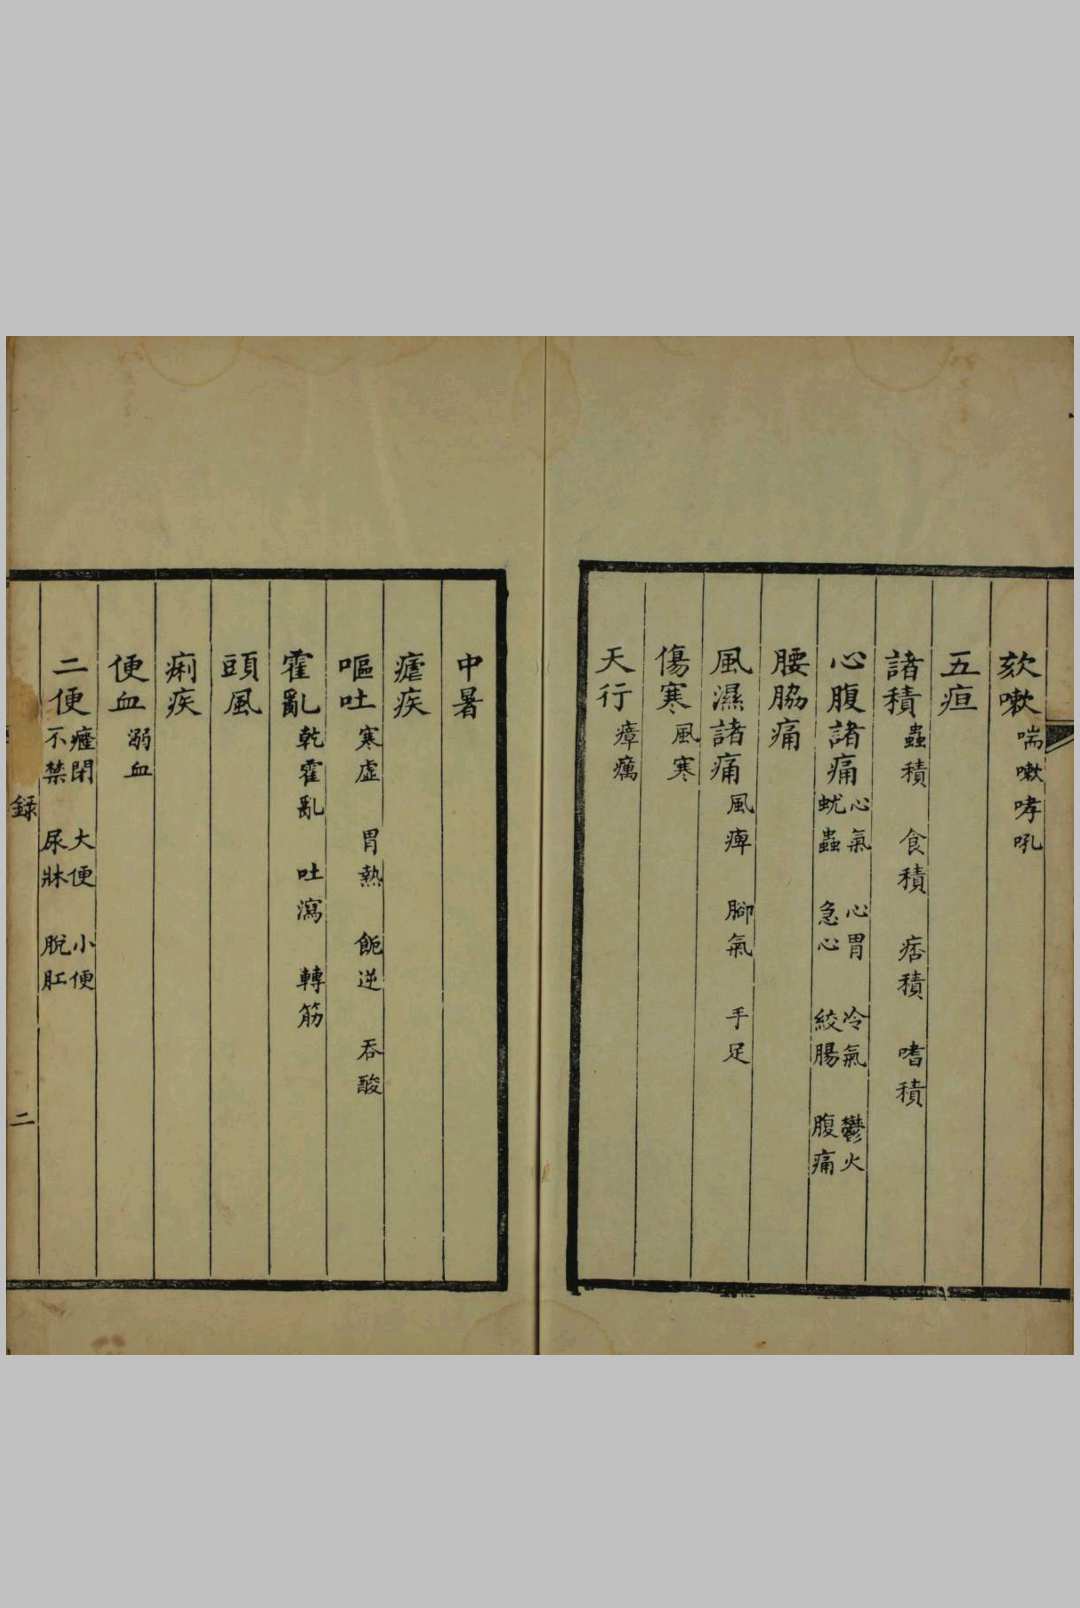 欬嗽 喘嗽哮吼
五疸
諸積 蟲積 食積 痞積 嗜積
心腹諸痛 心氣 心胃 冷氣 鬱火 蚘蟲 急心 絞腸 腹痛
腰脇痛
風濕諸痛 風痺 腳氣 手足
傷寒 風寒
天行 瘴癘
中暑
瘧疾
嘔吐 寒虛 胃熱 飽逆 吞酸
霍亂 乾霍亂 吐瀉 轉筋
頭風
痢疾
便血 溺血
二便 癃閉 大便 小便 不禁 尿牀 脫肛
録 二